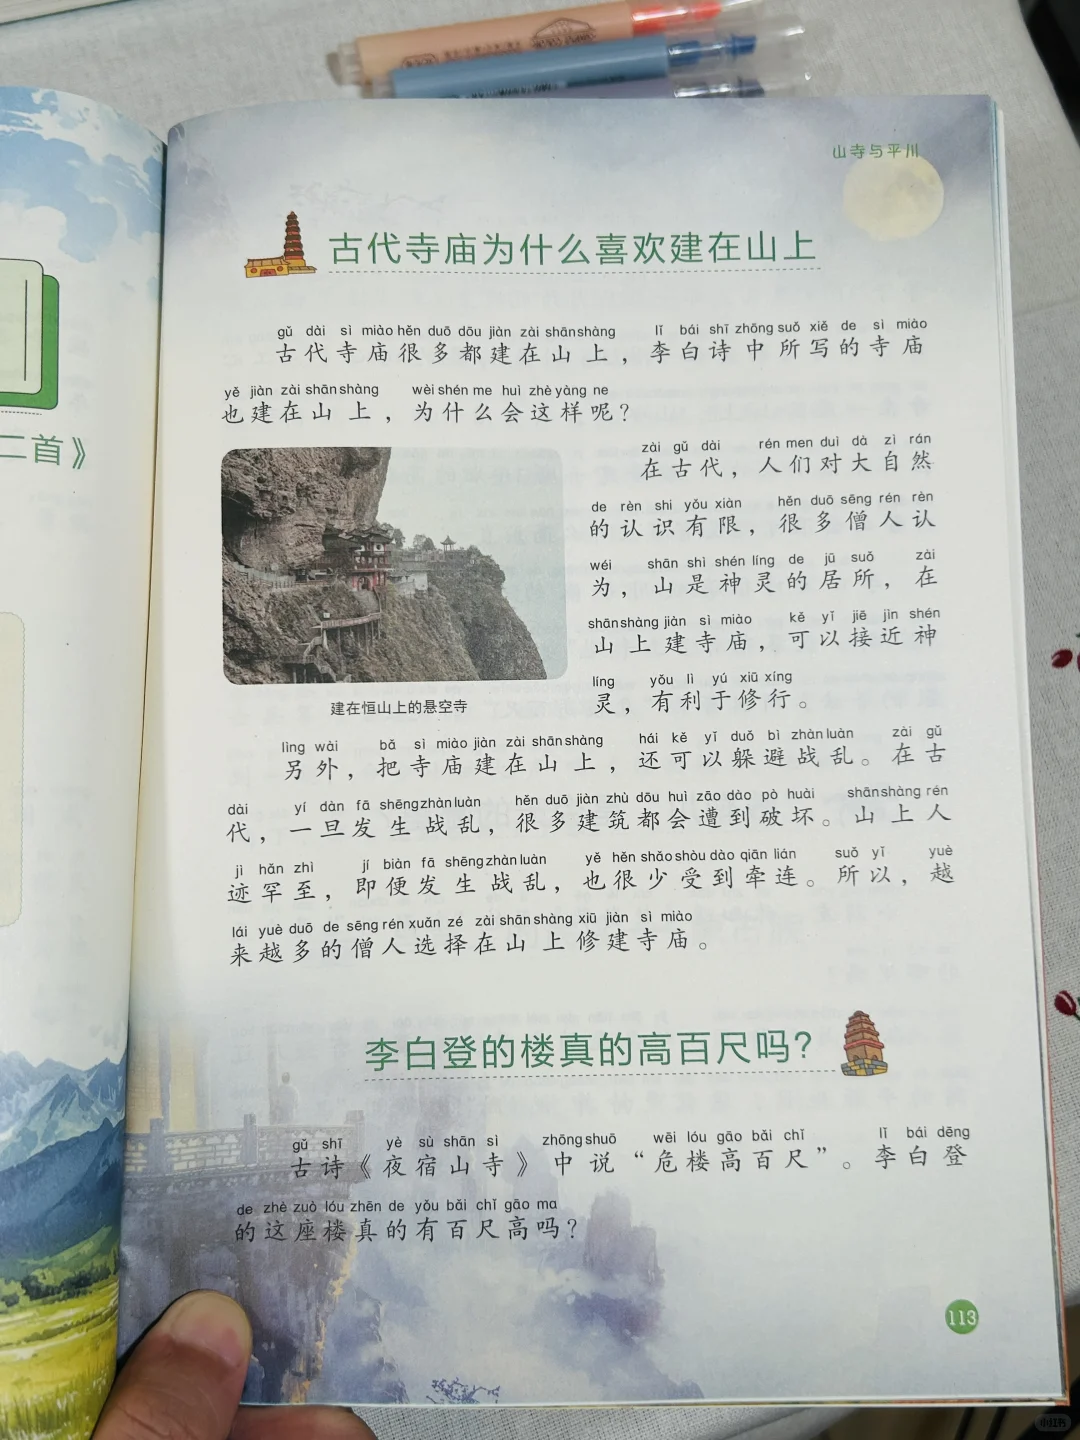 山寺与平川
古代寺庙为什么喜欢建在山上
gǔ dài sì miào hěn duō dōu jiàn zài shān shàng lǐ bái shī zhōng suǒ xiě de sì miào
古代寺庙很多都建在山上，李白诗中所写的寺庙
yě jiàn zài shān shàng wèi shén me huì zhè yàng ne
也建在山上，为什么会这样呢？
二首》
zài gǔ dài rén men duì dà zì rán
在古代，人们对大自然
de rèn shi yǒu xiàn hěn duō sēng rén rèn
的认识有限，很多僧人认
wéi shān shì shén líng de jū suǒ zài
为，山是神灵的居所，在
shān shàng jiàn sì miào kě yǐ jiē jìn shén
山上建寺庙，可以接近神
líng yǒu lì yú xiū xíng
灵，有利于修行。
建在恒山上的悬空寺
lìng wài bǎ sì miào jiàn zài shān shàng hái kě yǐ duǒ bì zhàn luàn zài gǔ
另外，把寺庙建在山上，还可以躲避战乱。在古
dài yí dàn fā shēng zhàn luàn hěn duō jiàn zhù dōu huì zāo dào pò huài shān shàng rén
代，一旦发生战乱，很多建筑都会遭到破坏。山上人
jì hǎn zhì jí biàn fā shēng zhàn luàn yě hěn shǎo shòu dào qiān lián suǒ yǐ yuè
迹罕至，即便发生战乱，也很少受到牵连。所以，越
lái yuè duō de sēng rén xuǎn zé zài shān shàng xiū jiàn sì miào
来越多的僧人选择在山上修建寺庙。
李白登的楼真的高百尺吗？
gǔ shī yè sù shān sì zhōng shuō wēi lóu gāo bǎi chǐ lǐ bái dēng
古诗《夜宿山寺》中说“危楼高百尺”。李白登
de zhè zuò lóu zhēn de yǒu bǎi chǐ gāo ma
的这座楼真的有百尺高吗？
113
小红书